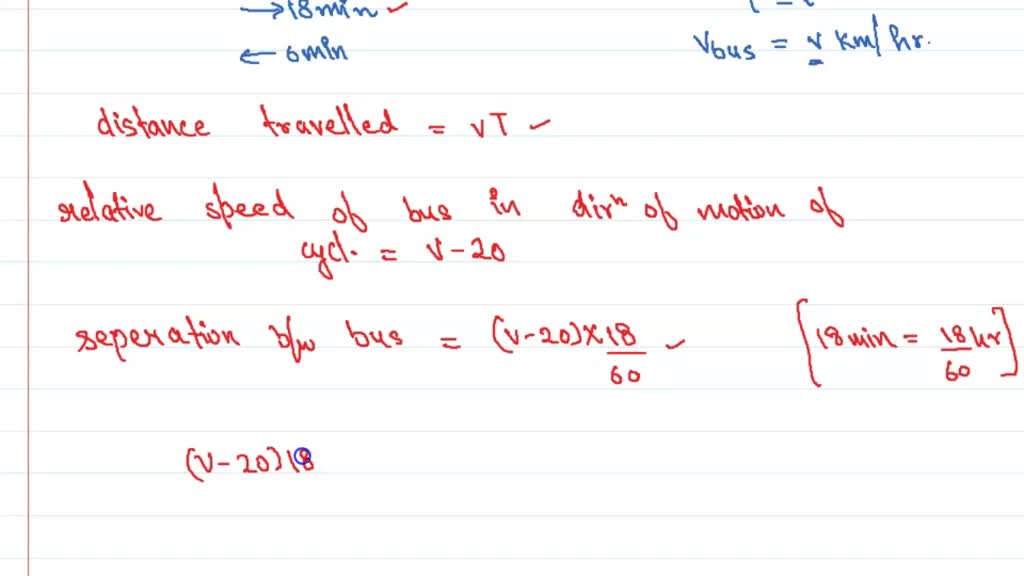 → 18 min ✓
← 6 min
V_bus = v km/hr.
distance travelled = vT ✓
relative speed of bus in dirⁿ of motion of
cycl. = v - 20
seperation b/w bus = (v-20) × 18/60 ✓ [18 min = 18/60 hr]
(v-20) 18